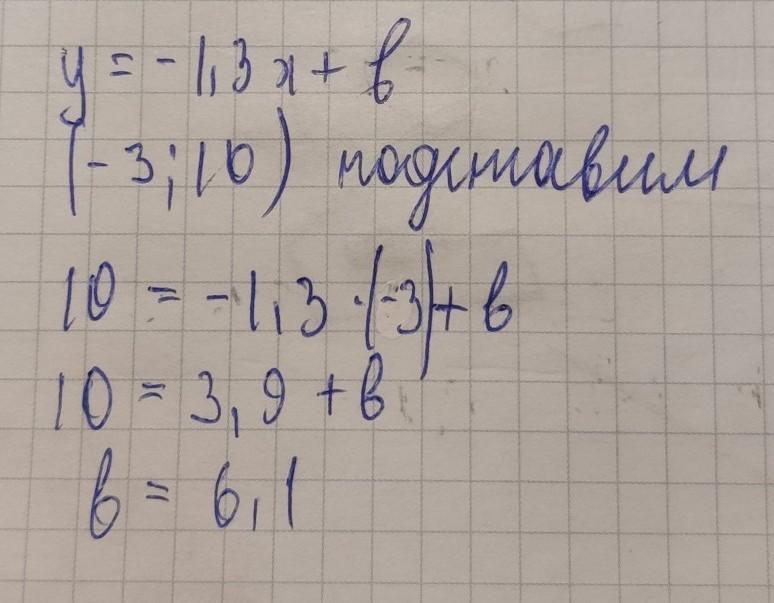 y = -1,3x + b
(-3; 10) подставим
10 = -1,3 · (-3) + b
10 = 3,9 + b
b = 6,1